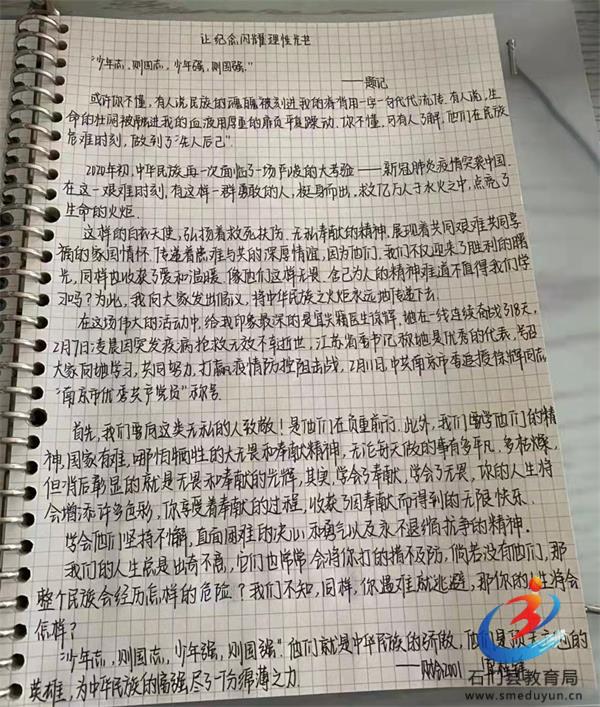 让纪念闪耀理性光芒
“少年志,则国志,少年强,则国强。”
——题记
或许你不懂,有人说民族的
有人说,生
命的壮阔被融进我的血液用厚重的肩负平复躁动。你不懂,可有人了解,他们在民族
危难时刻,做到了“先人后己”。
2020年初,中华民族再一次面临了一场严峻的大考验——新冠肺炎疫情突袭中国.
在这一艰难时刻,有这样一群勇敢的人,挺身而出,救亿万人于水火之中,点亮了
生命的火炬.
这样的白衣天使,弘扬着救死扶伤、无私奉献的精神,展现着共同艰难共同享
福的家国情怀.传递着患难与共的深厚情谊,因为他们,我们不仅迎来了胜利的曙
光,同样也收获了爱和温暖.像他们这样无畏、舍己为人的精神难道不值得我们学
习吗?为此,我向大家发出倡议,将中华民族之火炬永远地传递下去.
在这场伟大的活动中,给我印象最深的是
医生徐辉.她在一线连续奋战了18天,
2月7日凌晨因突发疾病抢救无效不幸逝世,江苏省委书记称她是优秀的代表,号召
大家向她学习,共同努力,打赢疫情防控阻击战,2月11日,中共南京市委追授徐辉同志
“南京市优秀共产党员”称号.
首先,我们要向这类无私的人致敬!是他们在负重前行.此外,我们要学他们的精
神,国家有难,哪怕牺牲的大无畏和奉献精神,无论每天做的事有多平凡,多枯燥,
但背后彰显的就是无畏和奉献的光辉,其实,学会了奉献,学会了无畏,你的人生将
会增添许多色彩,你享受着奉献的过程,收获了因奉献而得到的无限快乐.
学会他们坚持不懈,直面困难的决心和勇气以及永不退缩抗争的精神.
我们的人生总是出奇不意,它们也常常会将你打的措不及防,倘若没有他们,那
整个民族会经历怎样的危险?我们不知,同样,你遇难就逃避,那你的人生将会
怎样?
“少年志,则国志,少年强,则国强”.他们就是中华民族的骄傲,他们是
的
英雄,为中华民族的富强尽了一份绵薄之力.
——财会2001
石门县教育局
www.smeduyun.cn